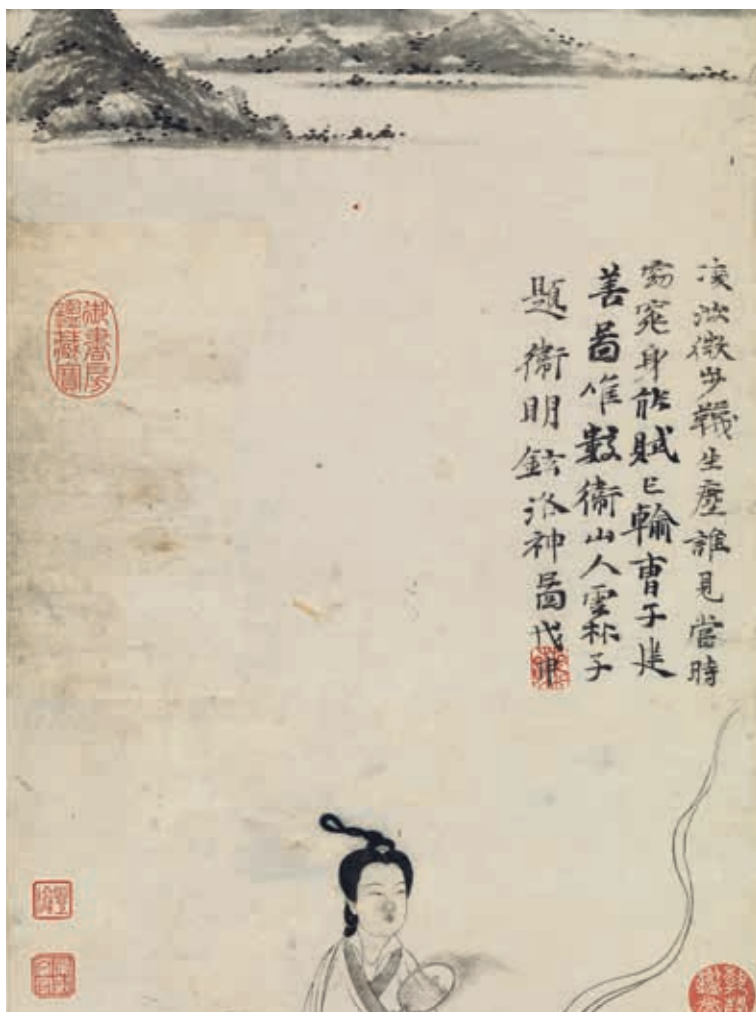 凌波微步韈生塵誰見當時
窈窕身能賦已輸曹子建
善啚唯數衛山人雲林子
題衛明鉉洛神啚戊申
御書房鑑藏寶